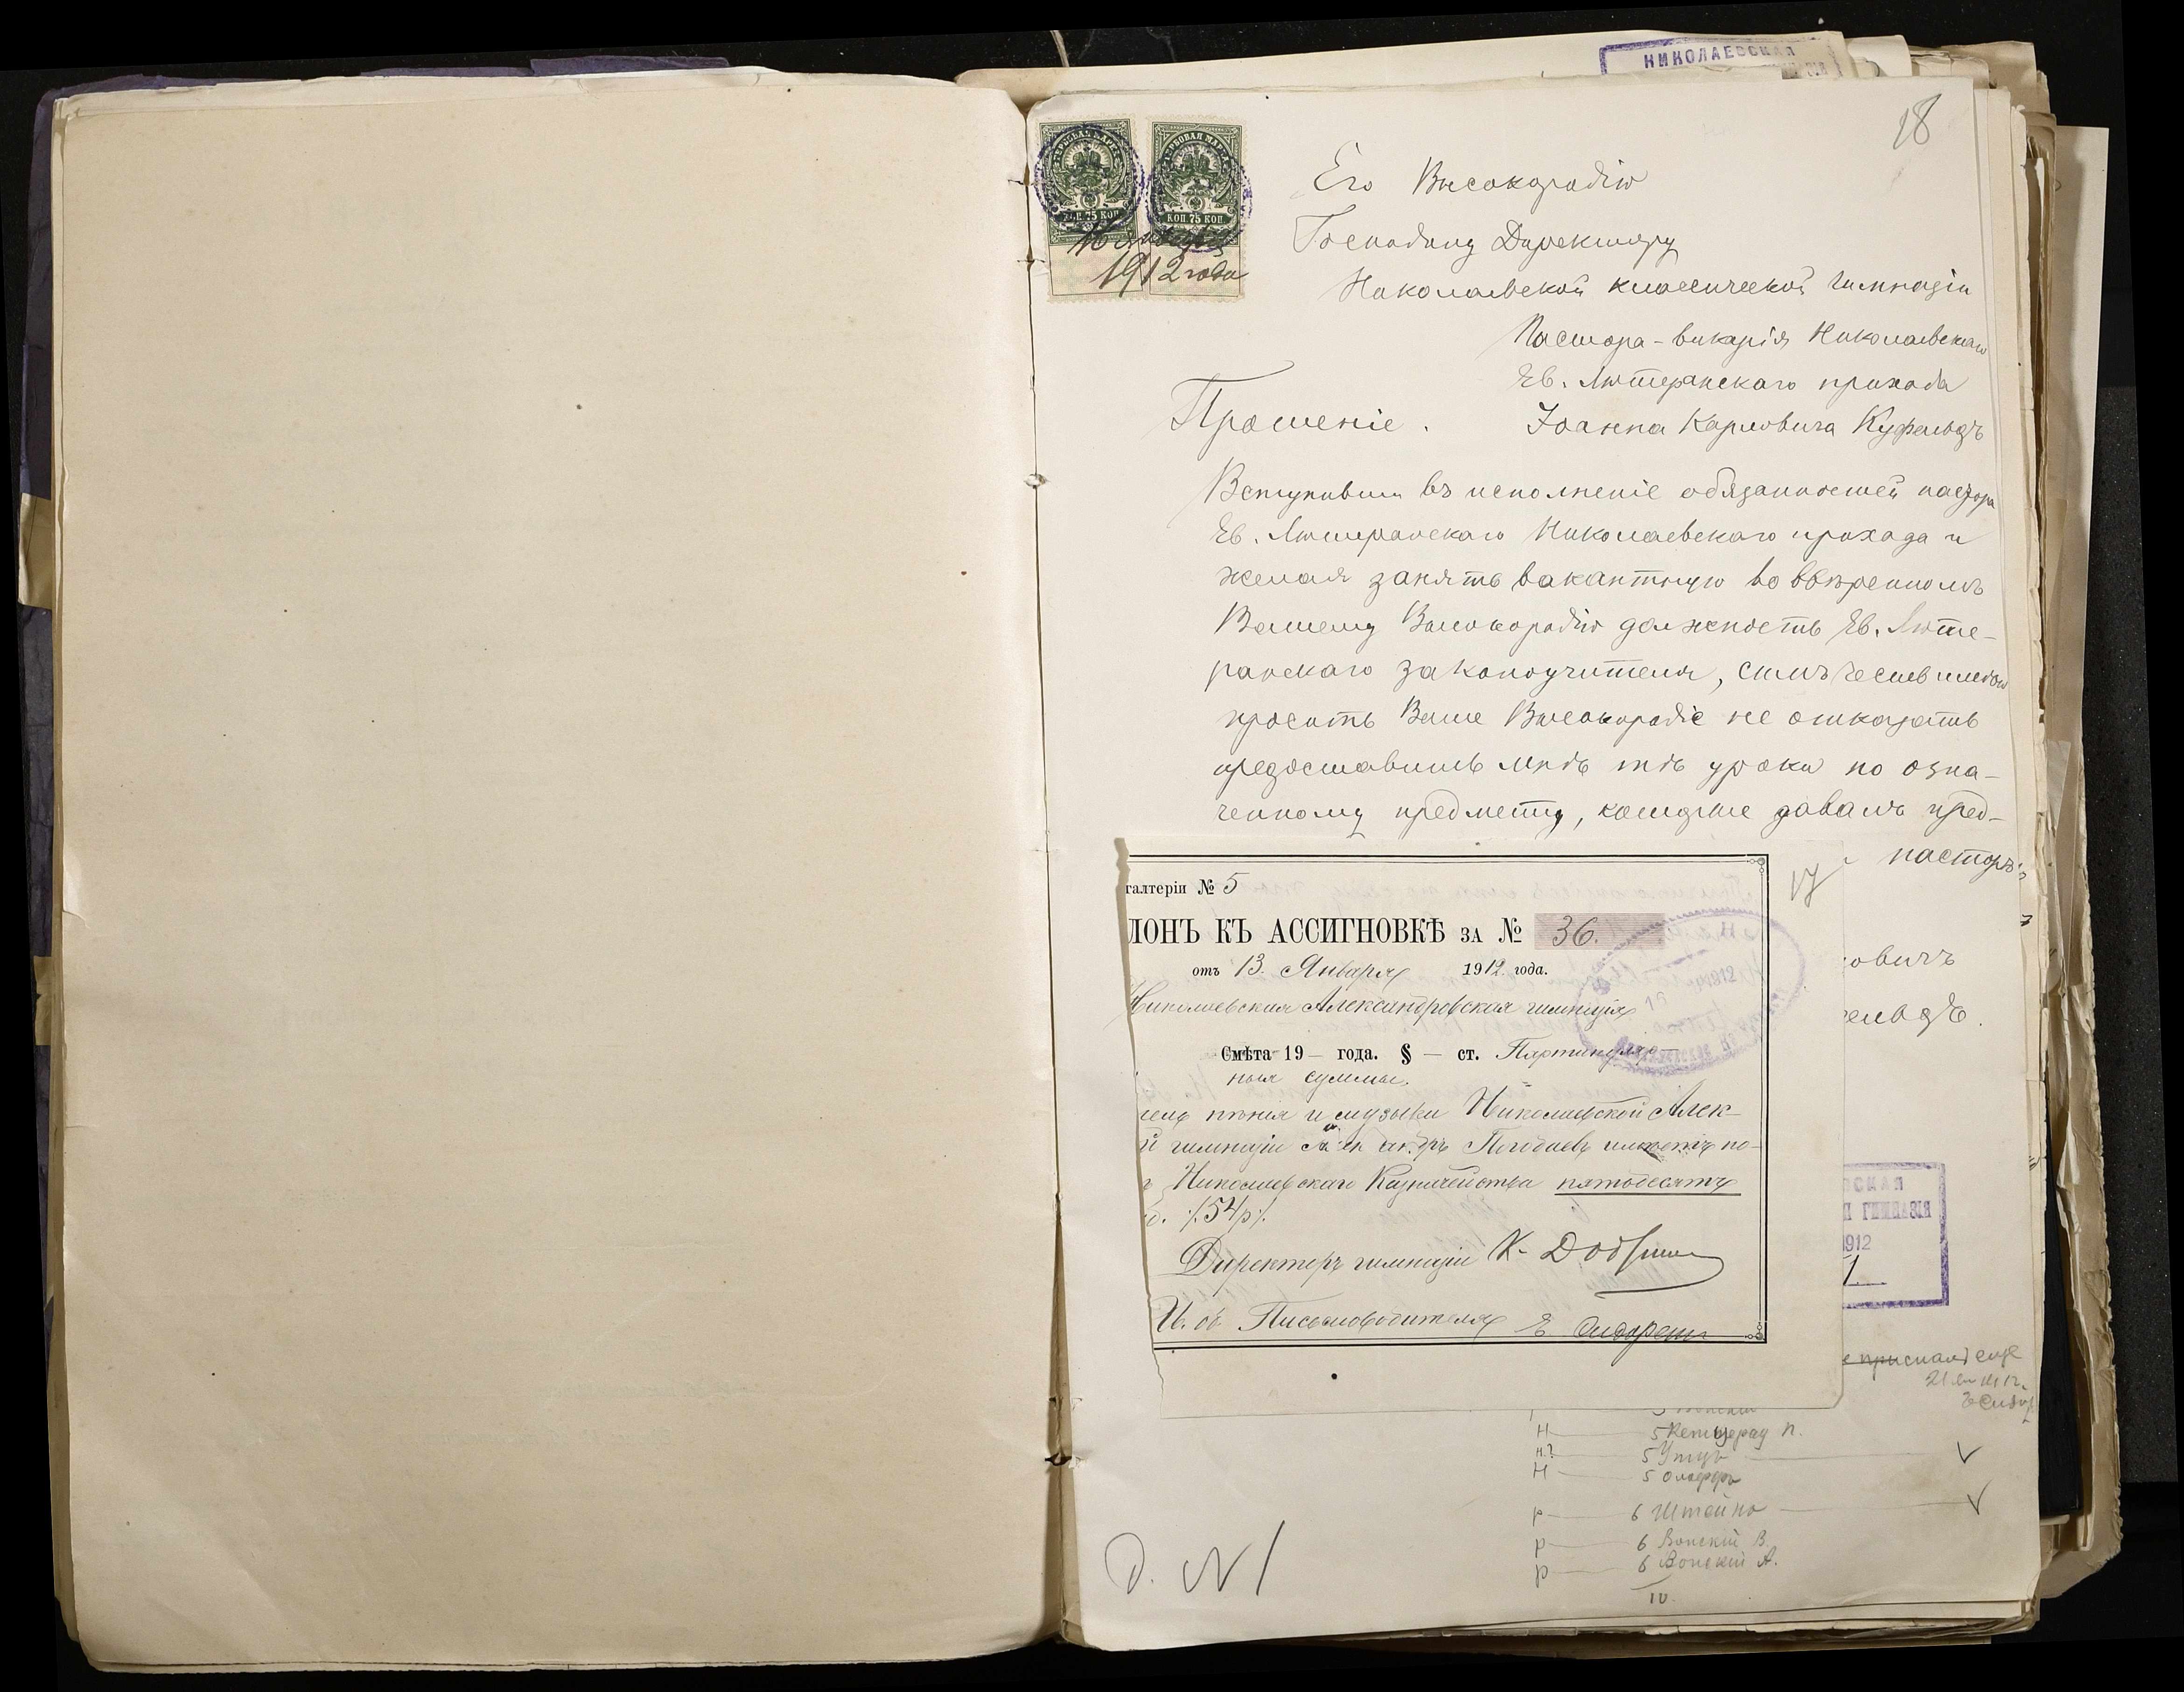 НИКОЛАЕВСКАЯ
18
ГЕРБОВАЯ МАРКА
ГЕРБОВАЯ МАРКА
КОП. 75 КОП.
КОП. 75 КОП.
1912 года
Его Высокородію
Господину Директору
Николаевской классической гимназіи
Пастора-викарія Николаевскаго
Ев. Лютеранскаго прихода
Іоанна Карловича Куфельдъ
Прошеніе.
Вступивши въ исполненіе обязанностей пастора
Ев. Лютеранскаго Николаевскаго прихода и
желая занять вакантную во ввѣренномъ
Вашему Высокородію должность Ев. Люте-
ранскаго законоучителя, симъ честь имѣю
просить Ваше Высокородіе не отказать
предоставить мнѣ тѣ уроки по озна-
ченному предмету, которые давалъ пред-
пасторъ
17
галтеріи № 5
ЛОНЪ КЪ АССИГНОВКѢ ЗА № 36.
отъ 13. Января 1912 года.
Николаевская Александровская гимназія
Смѣта 19 — года. § — ст. Партикуляр-
ныя суммы.
телю пѣнія и музыки Николаевской Алек-
й гимназіи Погодаевъ имѣетъ по-
Николаевскаго Казначейства пятьдесятъ
б. /54р/.
Директоръ гимназіи К.
И. об. Письмоводителя Е Сидорен
овичъ
ельдъ.
СКАЯ
ГИМНАЗІЯ
1912
1.
еще
Н — 5 п.
н.? — 5 Утцъ — V
Н — 5
р — 6 Штейнъ — V
р — 6 Вонскій В.
р — 6 Вонскій А.
IV
д. N 1